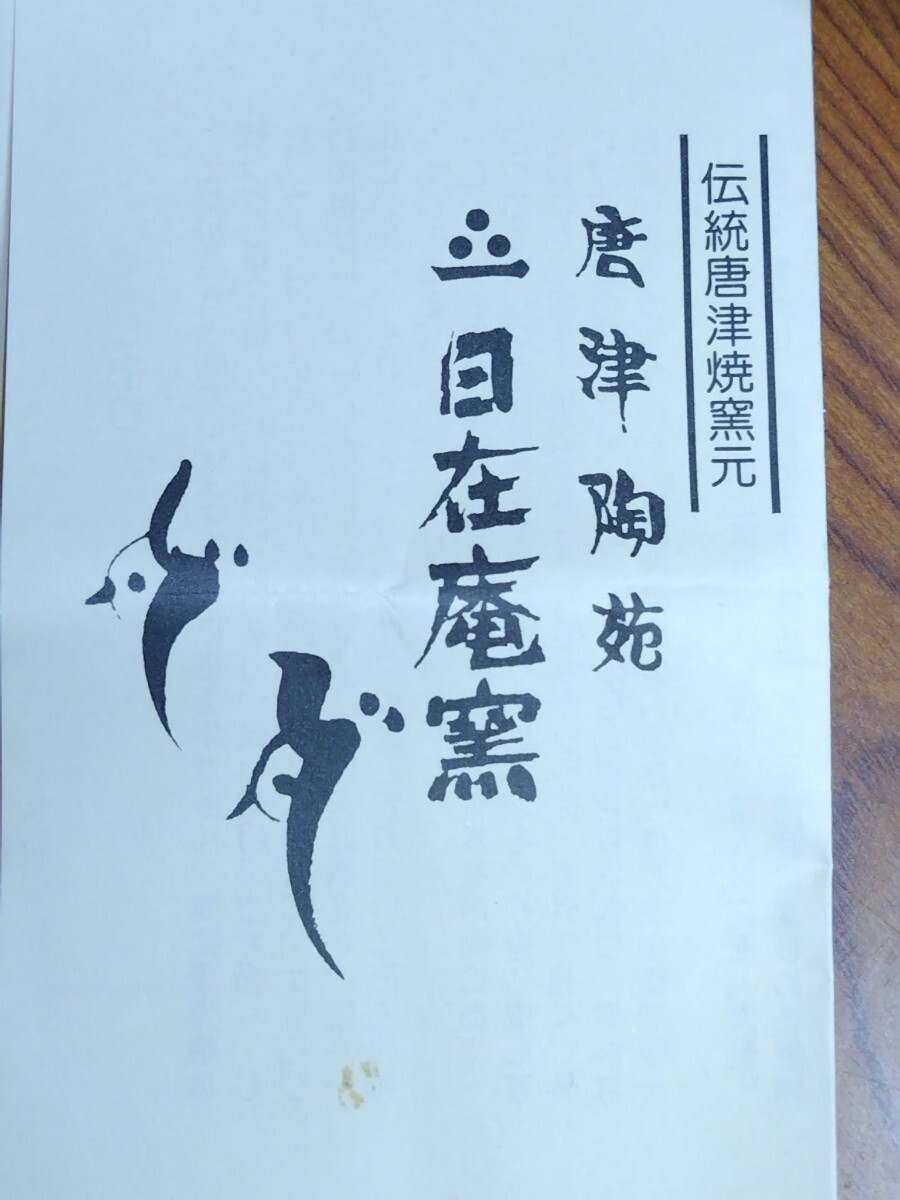 伝統唐津焼窯元
唐津陶苑
日在庵窯